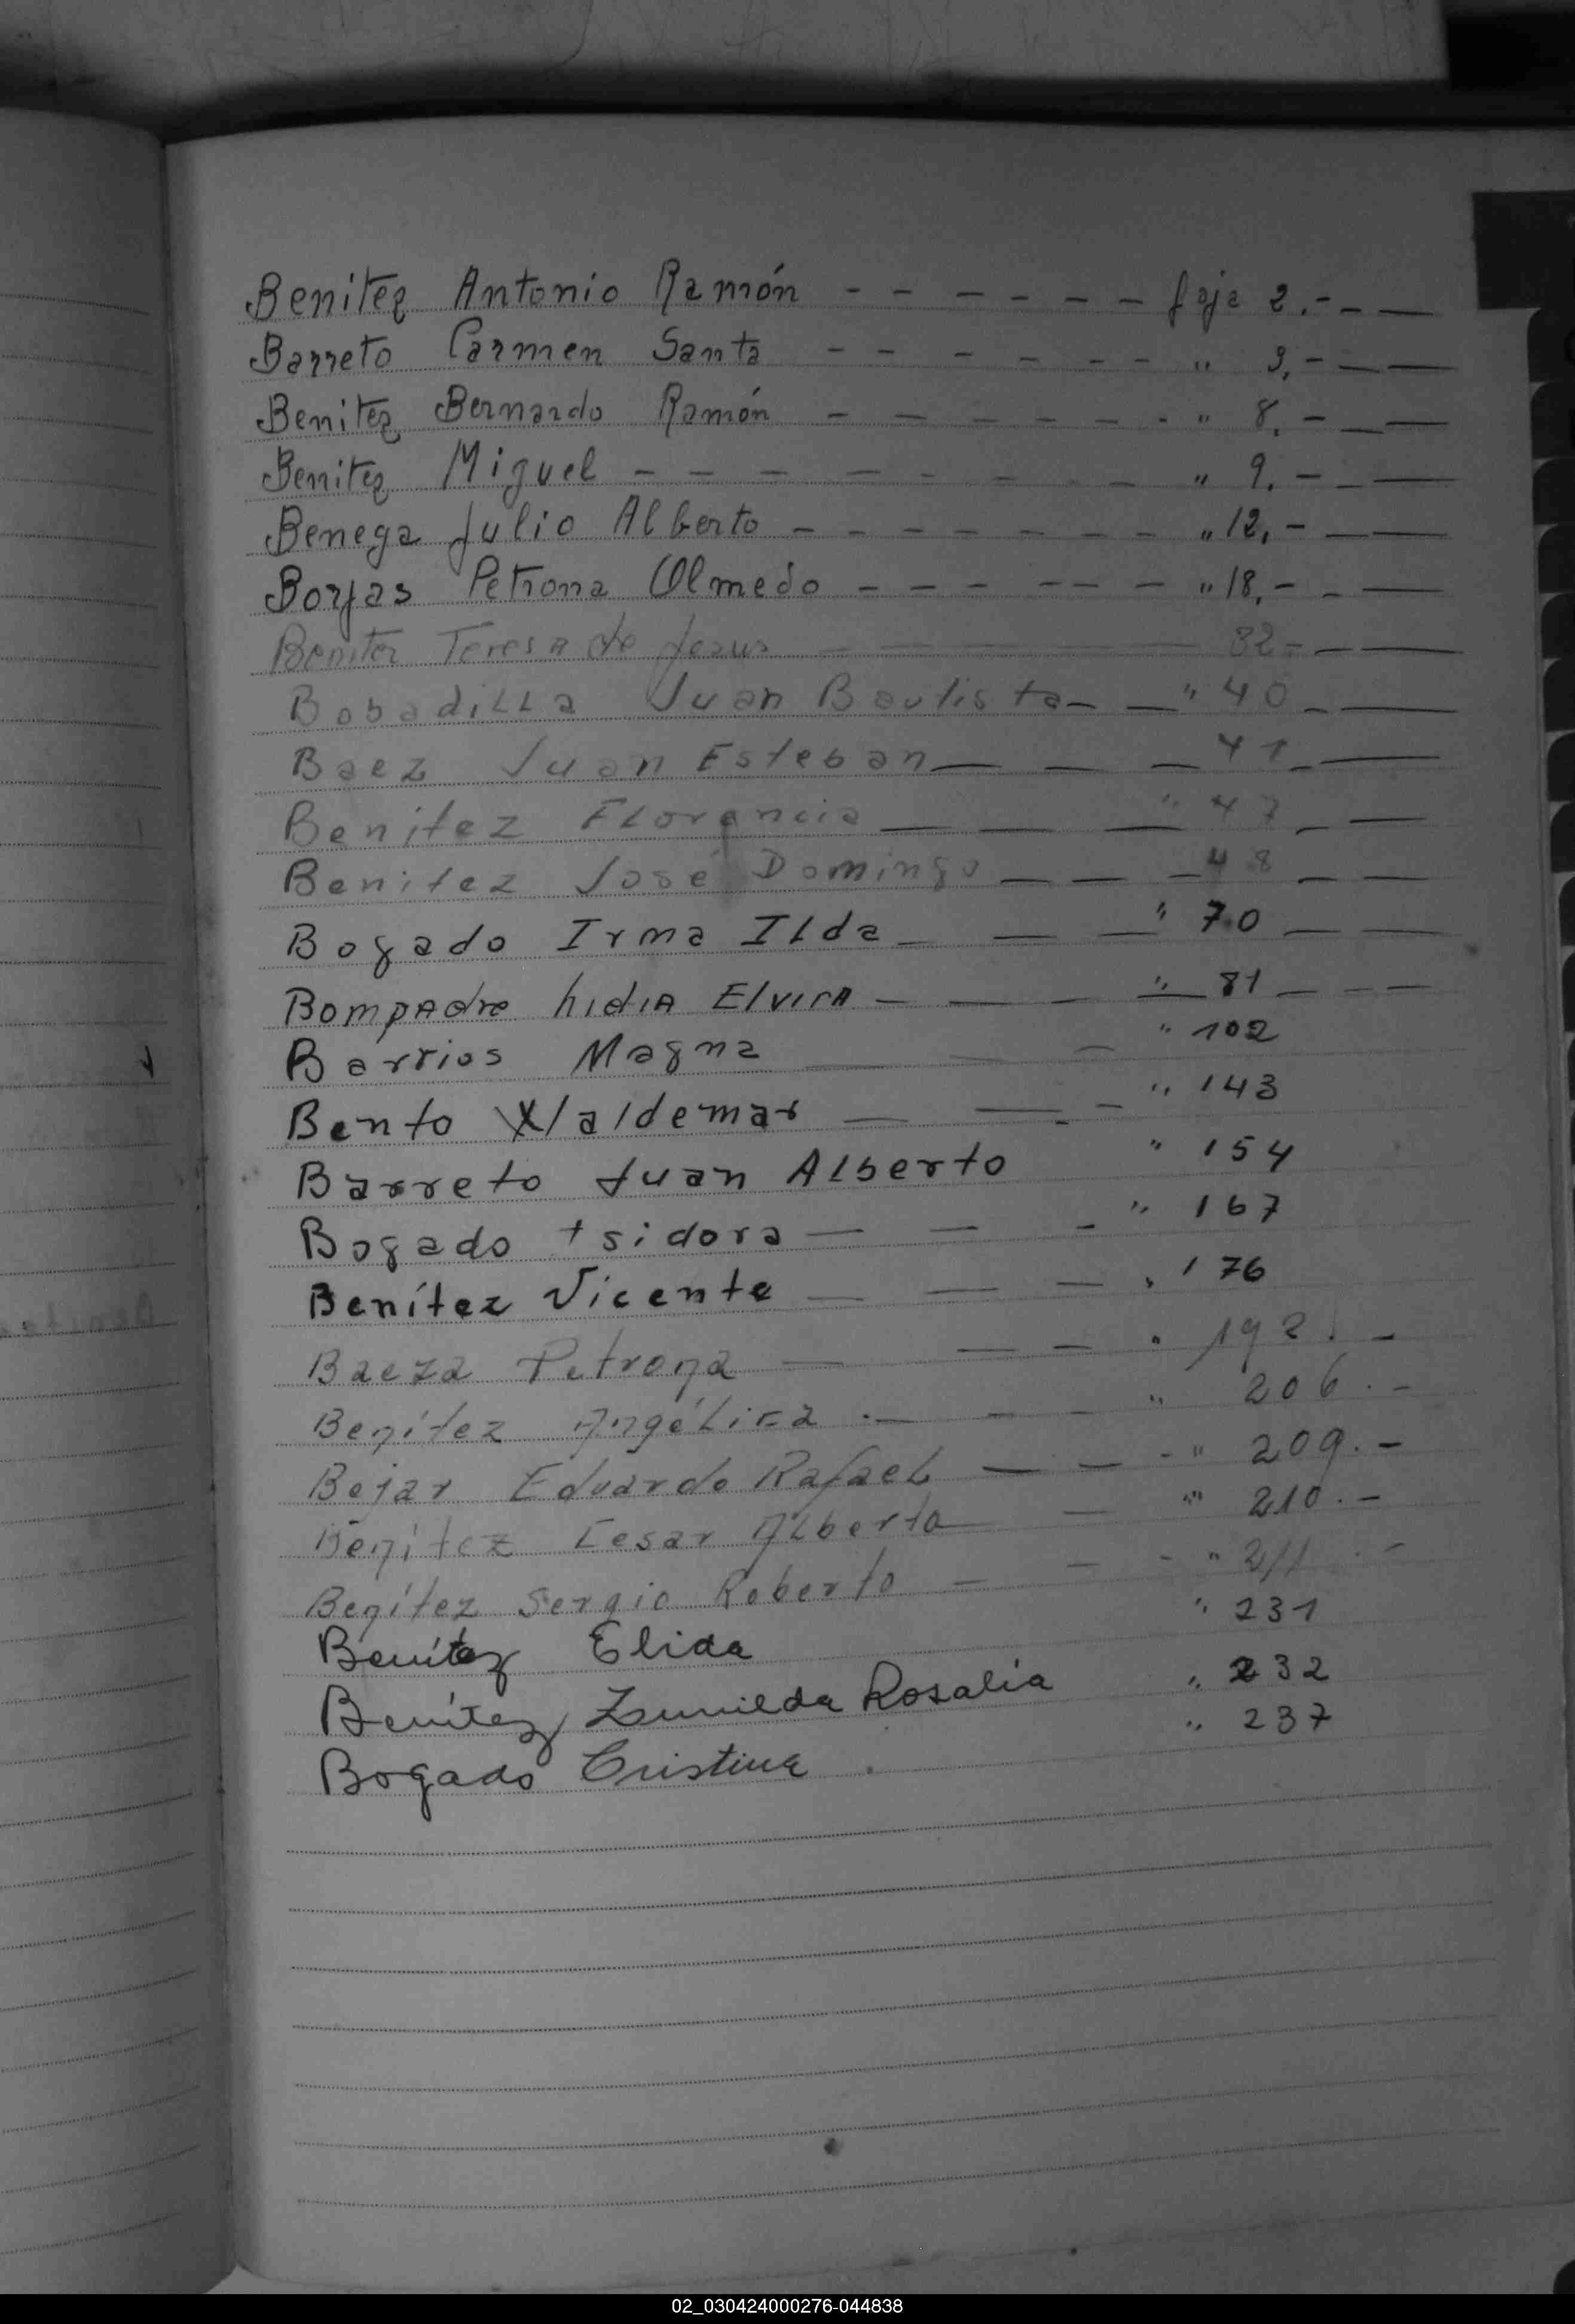 Benitez Antonio Ramón - - - - - - foja 2.- - —
Barreto Carmen Santa - - - - - - " 3.- — —
Benitez Bernardo Ramón - - - - - - - " 8.- — —
Benitez Miguel - - - - - - - - " 9.- - —
Benega Julio Alberto - - - - - - - " 12.- — —
Borjas Petrona Olmedo - - - - - - " 18.- - —
Benitez Teresa de Jesus — — — — 32 - — —
Bobadilla Juan Bautista - — " 40 - —
Baez Juan Esteban — — — 41 - —
Benitez Florencia — — — " 47 - —
Benitez José Domingo — — — 48 — —
Bogado Irma Ilda — — — " 70 — —
Bompadre Lidia Elvira — — — " 81 — — —
Barrios Magna — — — " 102
Bento Waldemar — — - " 143
Barreto Juan Alberto " 154
Bogado Isidora — — - " 167
Benítez Vicente — — — " 176
Baeza Petrona — — — " 192. -
Benítez Angélica . — — - " 206 . -
Bejar Eduardo Rafael — — - " 209. -
Benitez Cesar Alberto — — " 210. -
Benítez Sergio Roberto — — - " 211 . -
Benítez Elida " 231
Benítez Zunilda Rosalia " 232
Bogado Cristina . " 237
02_030424000276-044838